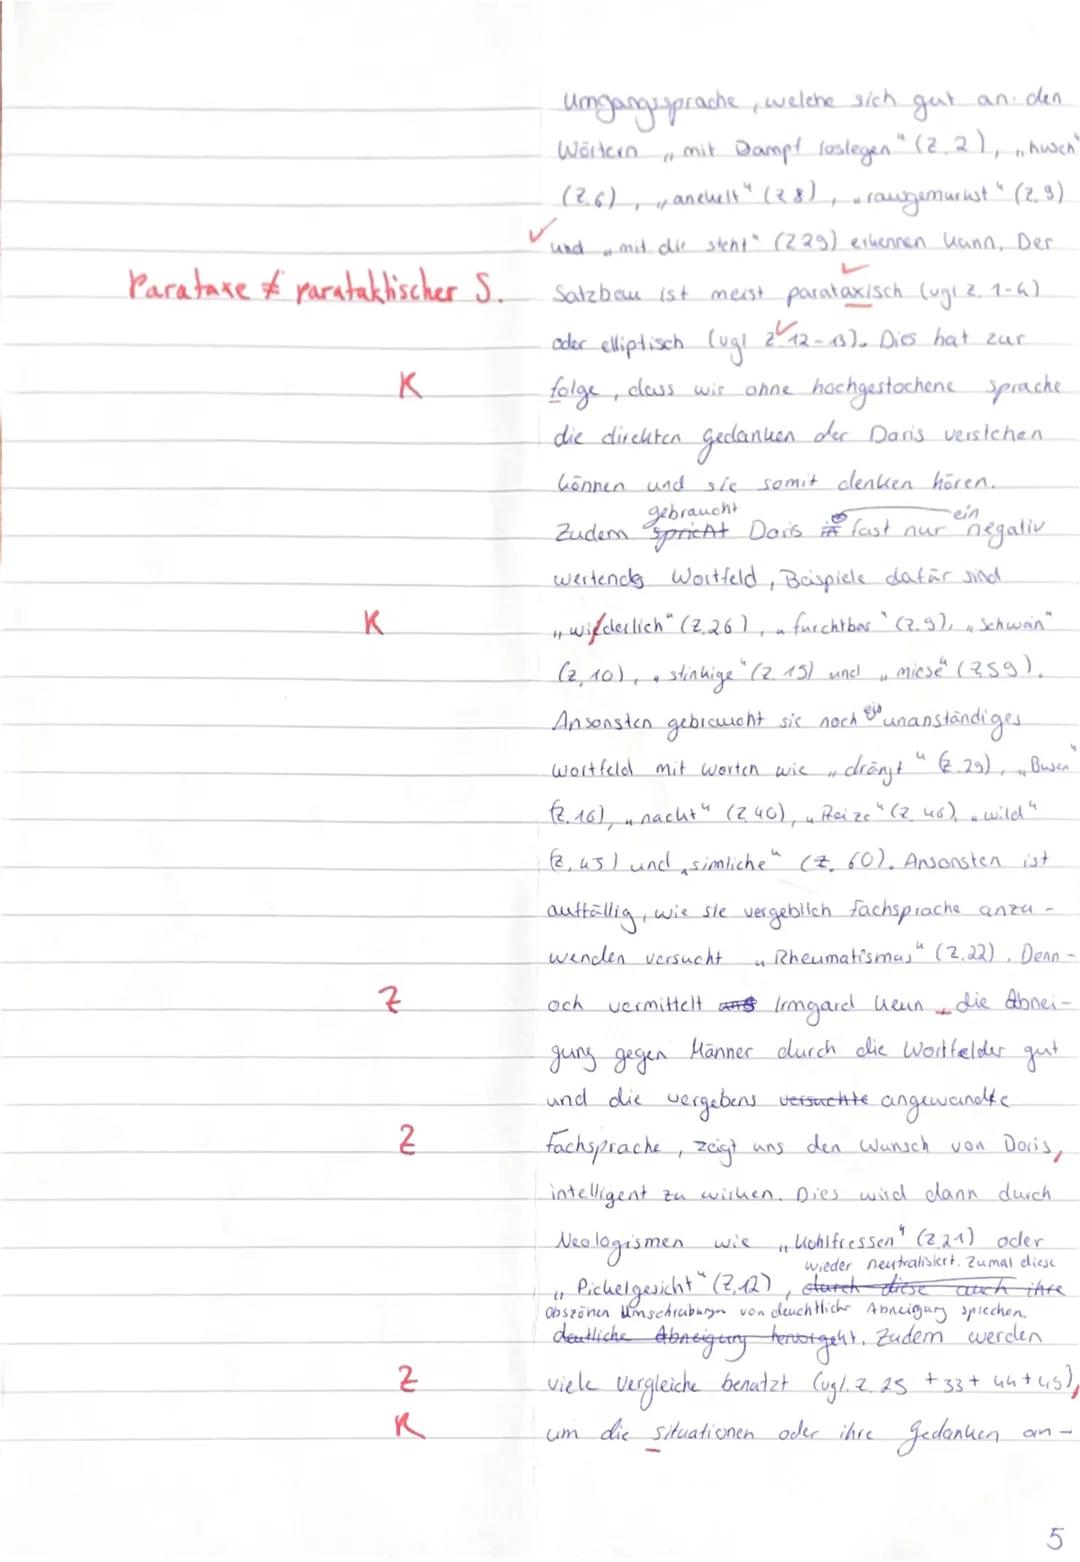 Umgangssprache, welche sich gut an den
Wörtern „mit Dampf loslegen" (Z. 2), „husch"
(Z. 6), „anekelt" (Z 8), „rausgemurkst" (Z. 9)
und „mit dir steht" (Z 29) erkennen kann. Der
Parataxe ≠ parataktischer S.
Satzbau ist meist parataxisch (vgl Z. 1-4)
oder elliptisch (vgl Z 12-13). Dies hat zur
K
folge, dass wir ohne hochgestochene sprache
die direkten gedanken der Doris verstehen
können und sie somit denken hören.
gebraucht ein
Zudem spricht Doris in fast nur negativ
wertendes Wortfeld, Beispiele dafür sind
K
„wiederlich" (Z. 26), „furchtbar" (Z. 9), „Schwein"
(Z, 10), „stinkige" (Z. 15) und „miese" (Z 59).
Ansonsten gebraucht sie noch ein unanständiges
wortfeld mit worten wie „drängt" (Z. 29), „Busen"
(Z. 16), „nackt" (Z 40), „Reize" (Z. 46), „wild"
(Z, 45) und „sinnliche" (Z. 60). Ansonsten ist
auffällig, wie sie vergeblich fachsprache anzu-
wenden versucht „Rheumatismus" (Z. 22). Denn-
Z
och vermittelt Irmgard Keun, die Abnei-
gung gegen Männer durch die Wortfelder gut
und die vergebens versuchte angewandte
Z
fachsprache, zeigt uns den Wunsch von Doris,
intelligent zu wirken. Dies wird dann durch
Neologismen wie „Kohlfressen" (Z 21) oder
wieder neutralisiert. Zumal diese
„Pickelgesicht" (Z. 12), durch diese auch ihre
obszönen Umschreibungen von deuchtlicher Abneigung sprechen.
deutliche Abneigung hervorgeht. Zudem werden
Z
viele Vergleiche benutzt (vgl. Z. 25 + 33 + 44 + 45),
K
um die situationen oder ihre gedanken an-
5